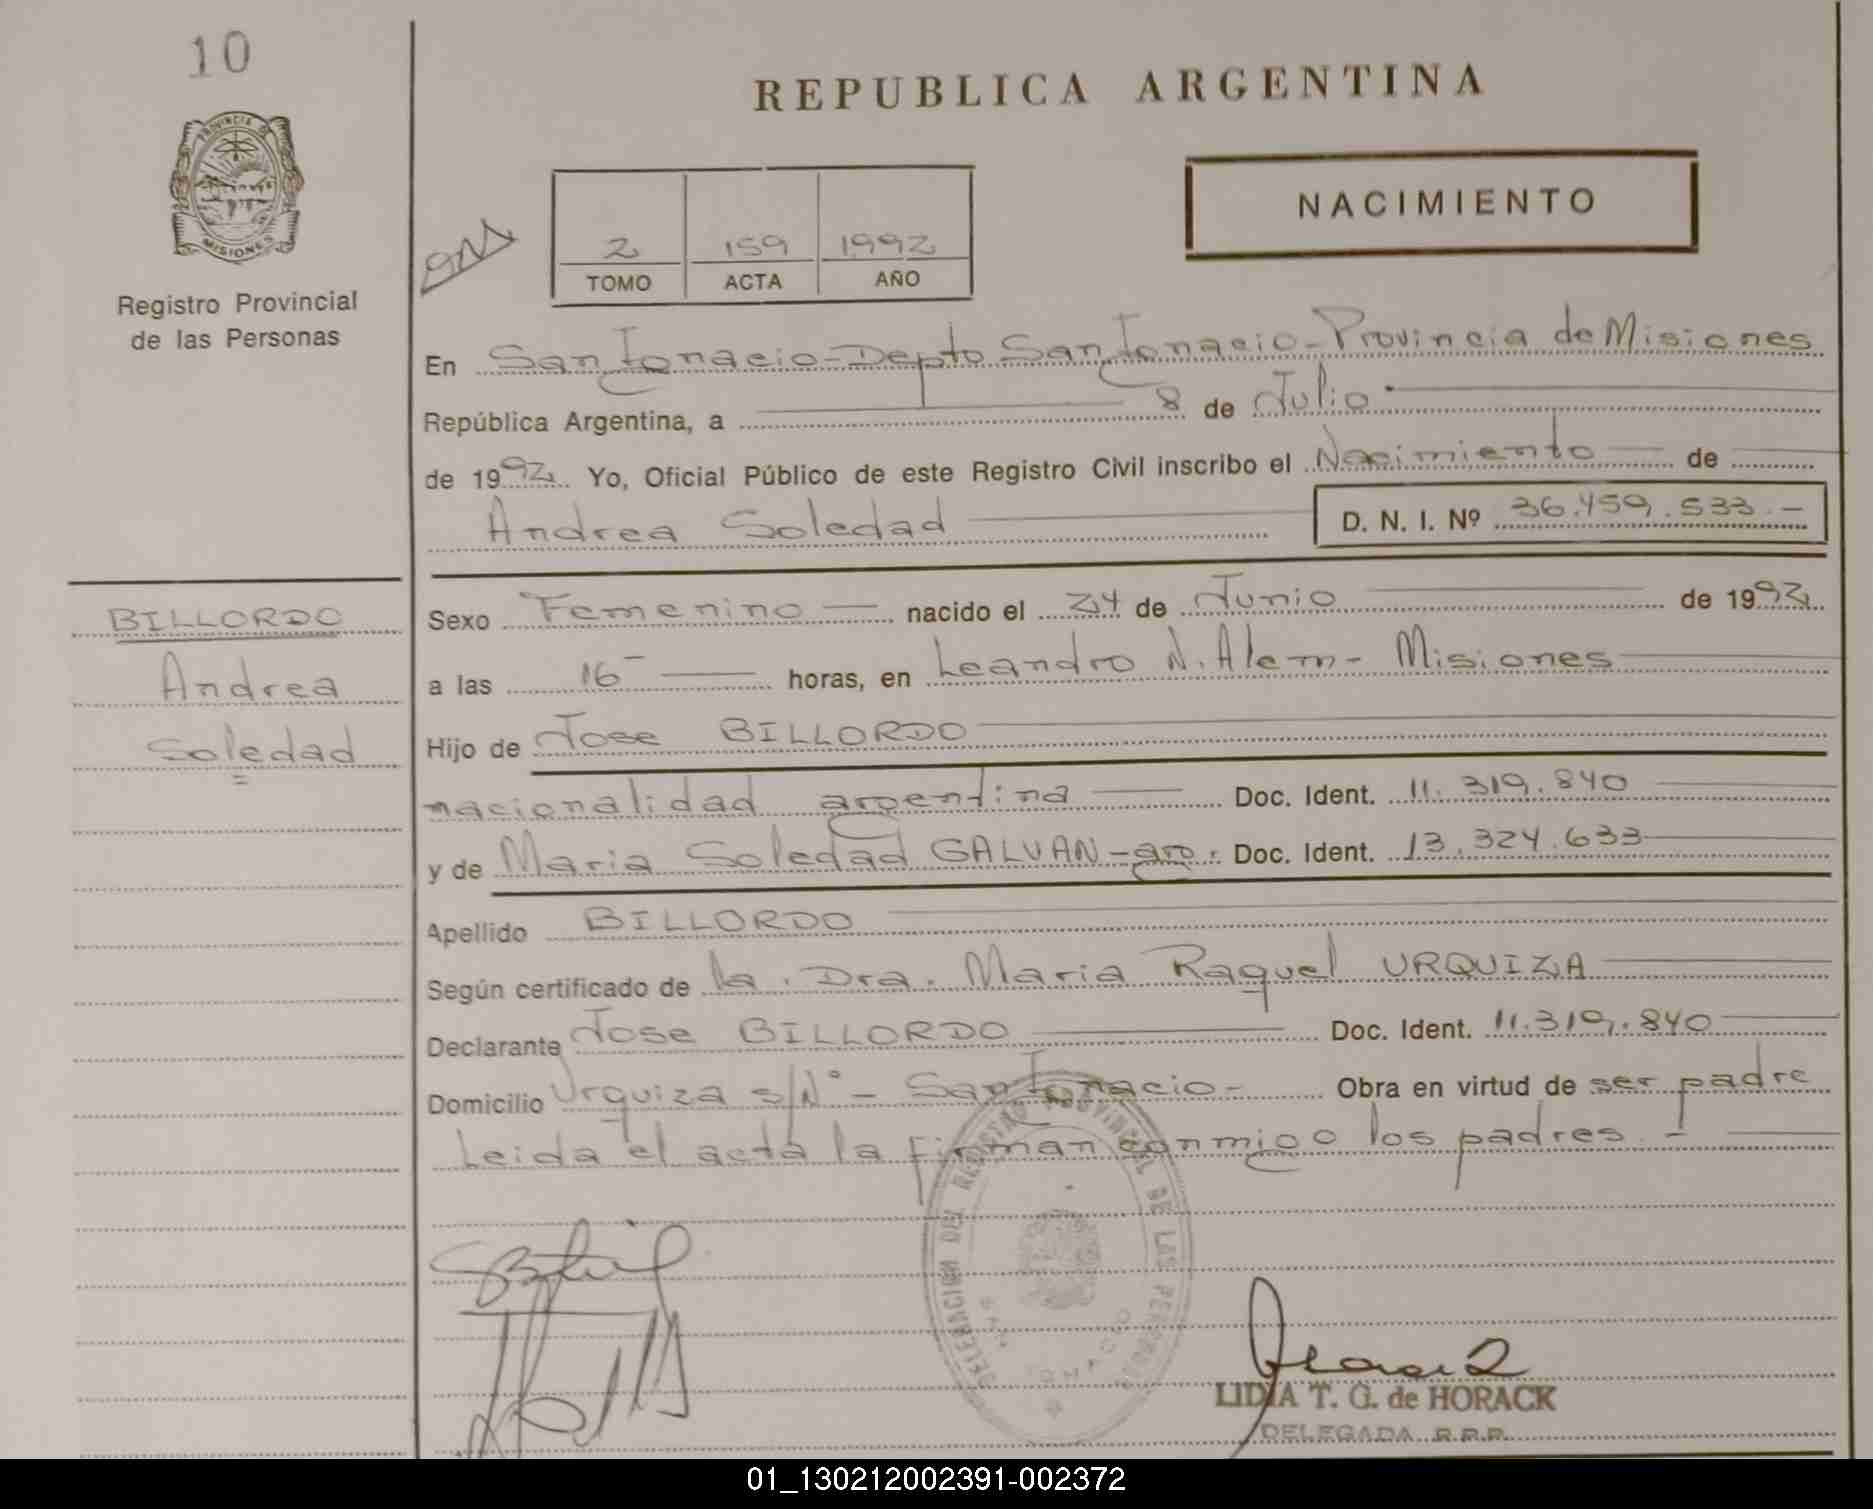 10
REPUBLICA ARGENTINA
PROVINCIA DE
MISIONES
Registro Provincial
de las Personas
NACIMIENTO
2 159 1992
TOMO ACTA AÑO
En San Ignacio-Depto San Ignacio-Provincia de Misiones
República Argentina, a 8 de Julio
de 1992 Yo, Oficial Público de este Registro Civil inscribo el Nacimiento de
Andrea Soledad D. N. I. Nº 36.459.533.-
BILLORDO
Andrea
Soledad
Sexo Femenino nacido el 24 de Junio de 1992
a las 16 horas, en Leandro N. Alem- Misiones
Hijo de Jose BILLORDO
nacionalidad argentina Doc. Ident. 11.319.840
y de Maria Soledad GALVAN-arg. Doc. Ident. 13.324.633
Apellido BILLORDO
Según certificado de la Dra. Maria Raquel URQUIZA
Declarante Jose BILLORDO Doc. Ident. 11.319.840
Domicilio Urquiza s/Nº - San Ignacio- Obra en virtud de ser padre
Leida el acta la firman conmigo los padres.-
DELEGACION DEL REGISTRO PROVINCIAL DE LAS PERSONAS
SAN IGNACIO
LIDIA T. G. de HORACK
DELEGADA R.P.P.
01_130212002391-002372